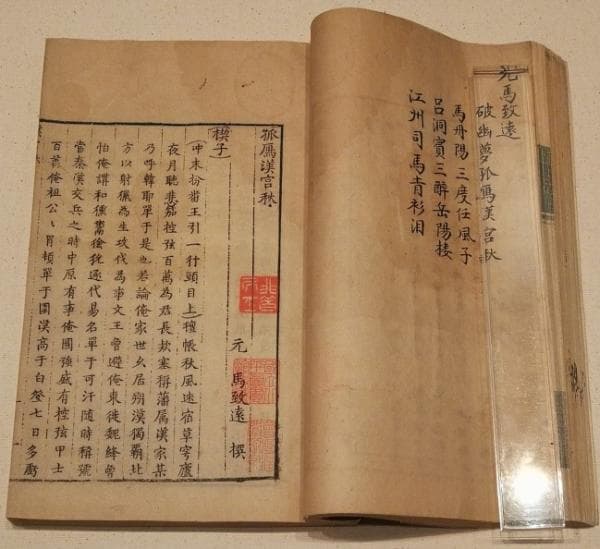 元馬致遠
破幽夢孤鴈漢宮秋
馬丹陽三度任風子
呂洞賓三醉岳陽樓
江州司馬青衫泪
孤鴈漢宮秋
元 馬致遠 撰
楔子
(冲末扮番王引一行頭目上)氊帳秋風迷宿草穹廬
夜月聽悲笳控弦百萬為君長款塞稱藩屬漢家某
乃呼韓耶單于是也若論俺家世久居朔漠獨霸北
方以射獵為生攻伐為事文王曾避俺東徙魏絳曾
怕俺講和獯鬻獫狁逐代易名單于可汗隨時稱號
當秦漢交兵之時中原有事俺國強盛有控弦甲士
百萬俺祖公々冒頓單于圍漢高于白登七日多虧